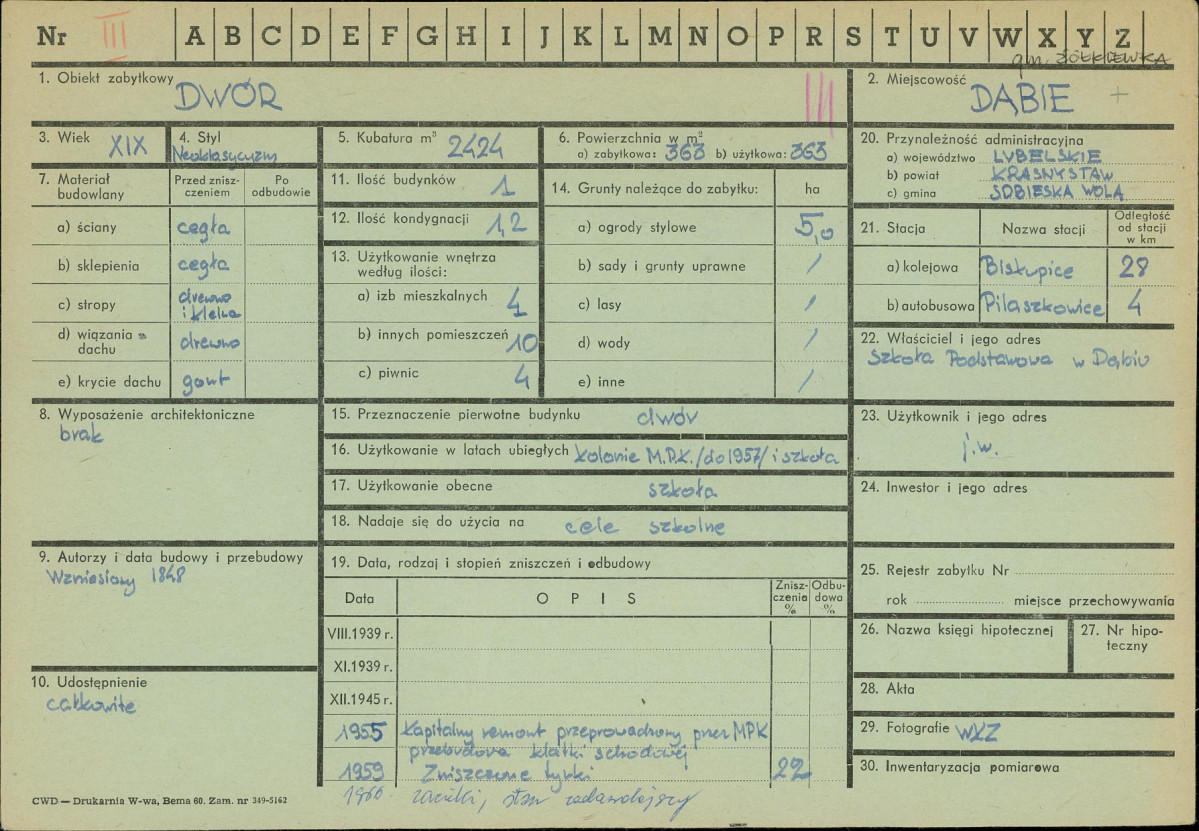 Nr III A B C D E F G H I J K L M N O P R S T U V W X Y Z
gm. ŻÓŁKIEWKA
1. Obiekt zabytkowy
DWÓR
III
2. Miejscowość
DĄBIE +
3. Wiek XIX
4. Styl
Neoklasycyzm
5. Kubatura m³ 2424
6. Powierzchnia w m²
a) zabytkowa: 363 b) użytkowa: 363
7. Materiał budowlany
Przed zniszczeniem
Po odbudowie
a) ściany cegła
b) sklepienia cegła
c) stropy drewno
d) wiązania dachu drewno
e) krycie dachu gont
8. Wyposażenie architektoniczne
brak
9. Autorzy i data budowy i przebudowy
Wzniesiony 1848
10. Udostępnienie
całkowite
11. Ilość budynków 1
12. Ilość kondygnacji 1,2
13. Użytkowanie wnętrza
według ilości:
a) izb mieszkalnych 4
b) innych pomieszczeń 10
c) piwnic 4
14. Grunty należące do zabytku: ha
a) ogrody stylowe 5,0
b) sady i grunty uprawne /
c) lasy /
d) wody /
e) inne /
15. Przeznaczenie pierwotne budynku dwór
16. Użytkowanie w latach ubiegłych kolonie M.P.K. /do 1957/ i szkoła
17. Użytkowanie obecne szkoła
18. Nadaje się do użycia na cele szkolne
19. Data, rodzaj i stopień zniszczeń i odbudowy
Data OPIS Zniszczenia % Odbudowa %
VIII.1939 r.
XI.1939 r.
XII.1945 r.
1955 Kapitalny remont przeprowadzony przez MPK
przebudowa klatki schodowej
1959 Zniszczone tynki 22
1966. zacieki, stan zadawalający
20. Przynależność administracyjna
a) województwo LUBELSKIE
b) powiat KRASNYSTAW
c) gmina SOBIESKA WOLA
21. Stacja Nazwa stacji Odległość od stacji w km
a) kolejowa Biskupice 28
b) autobusowa Pilaszkowice 4
22. Właściciel i jego adres
Szkoła Podstawowa w Dąbiu
23. Użytkownik i jego adres
j.w.
24. Inwestor i jego adres
25. Rejestr zabytku Nr
rok miejsce przechowywania
26. Nazwa księgi hipotecznej
27. Nr hipoteczny
28. Akta
29. Fotografie WKZ
30. Inwentaryzacja pomiarowa
CWD — Drukarnia W-wa, Bema 60. Zam. nr 349-5162